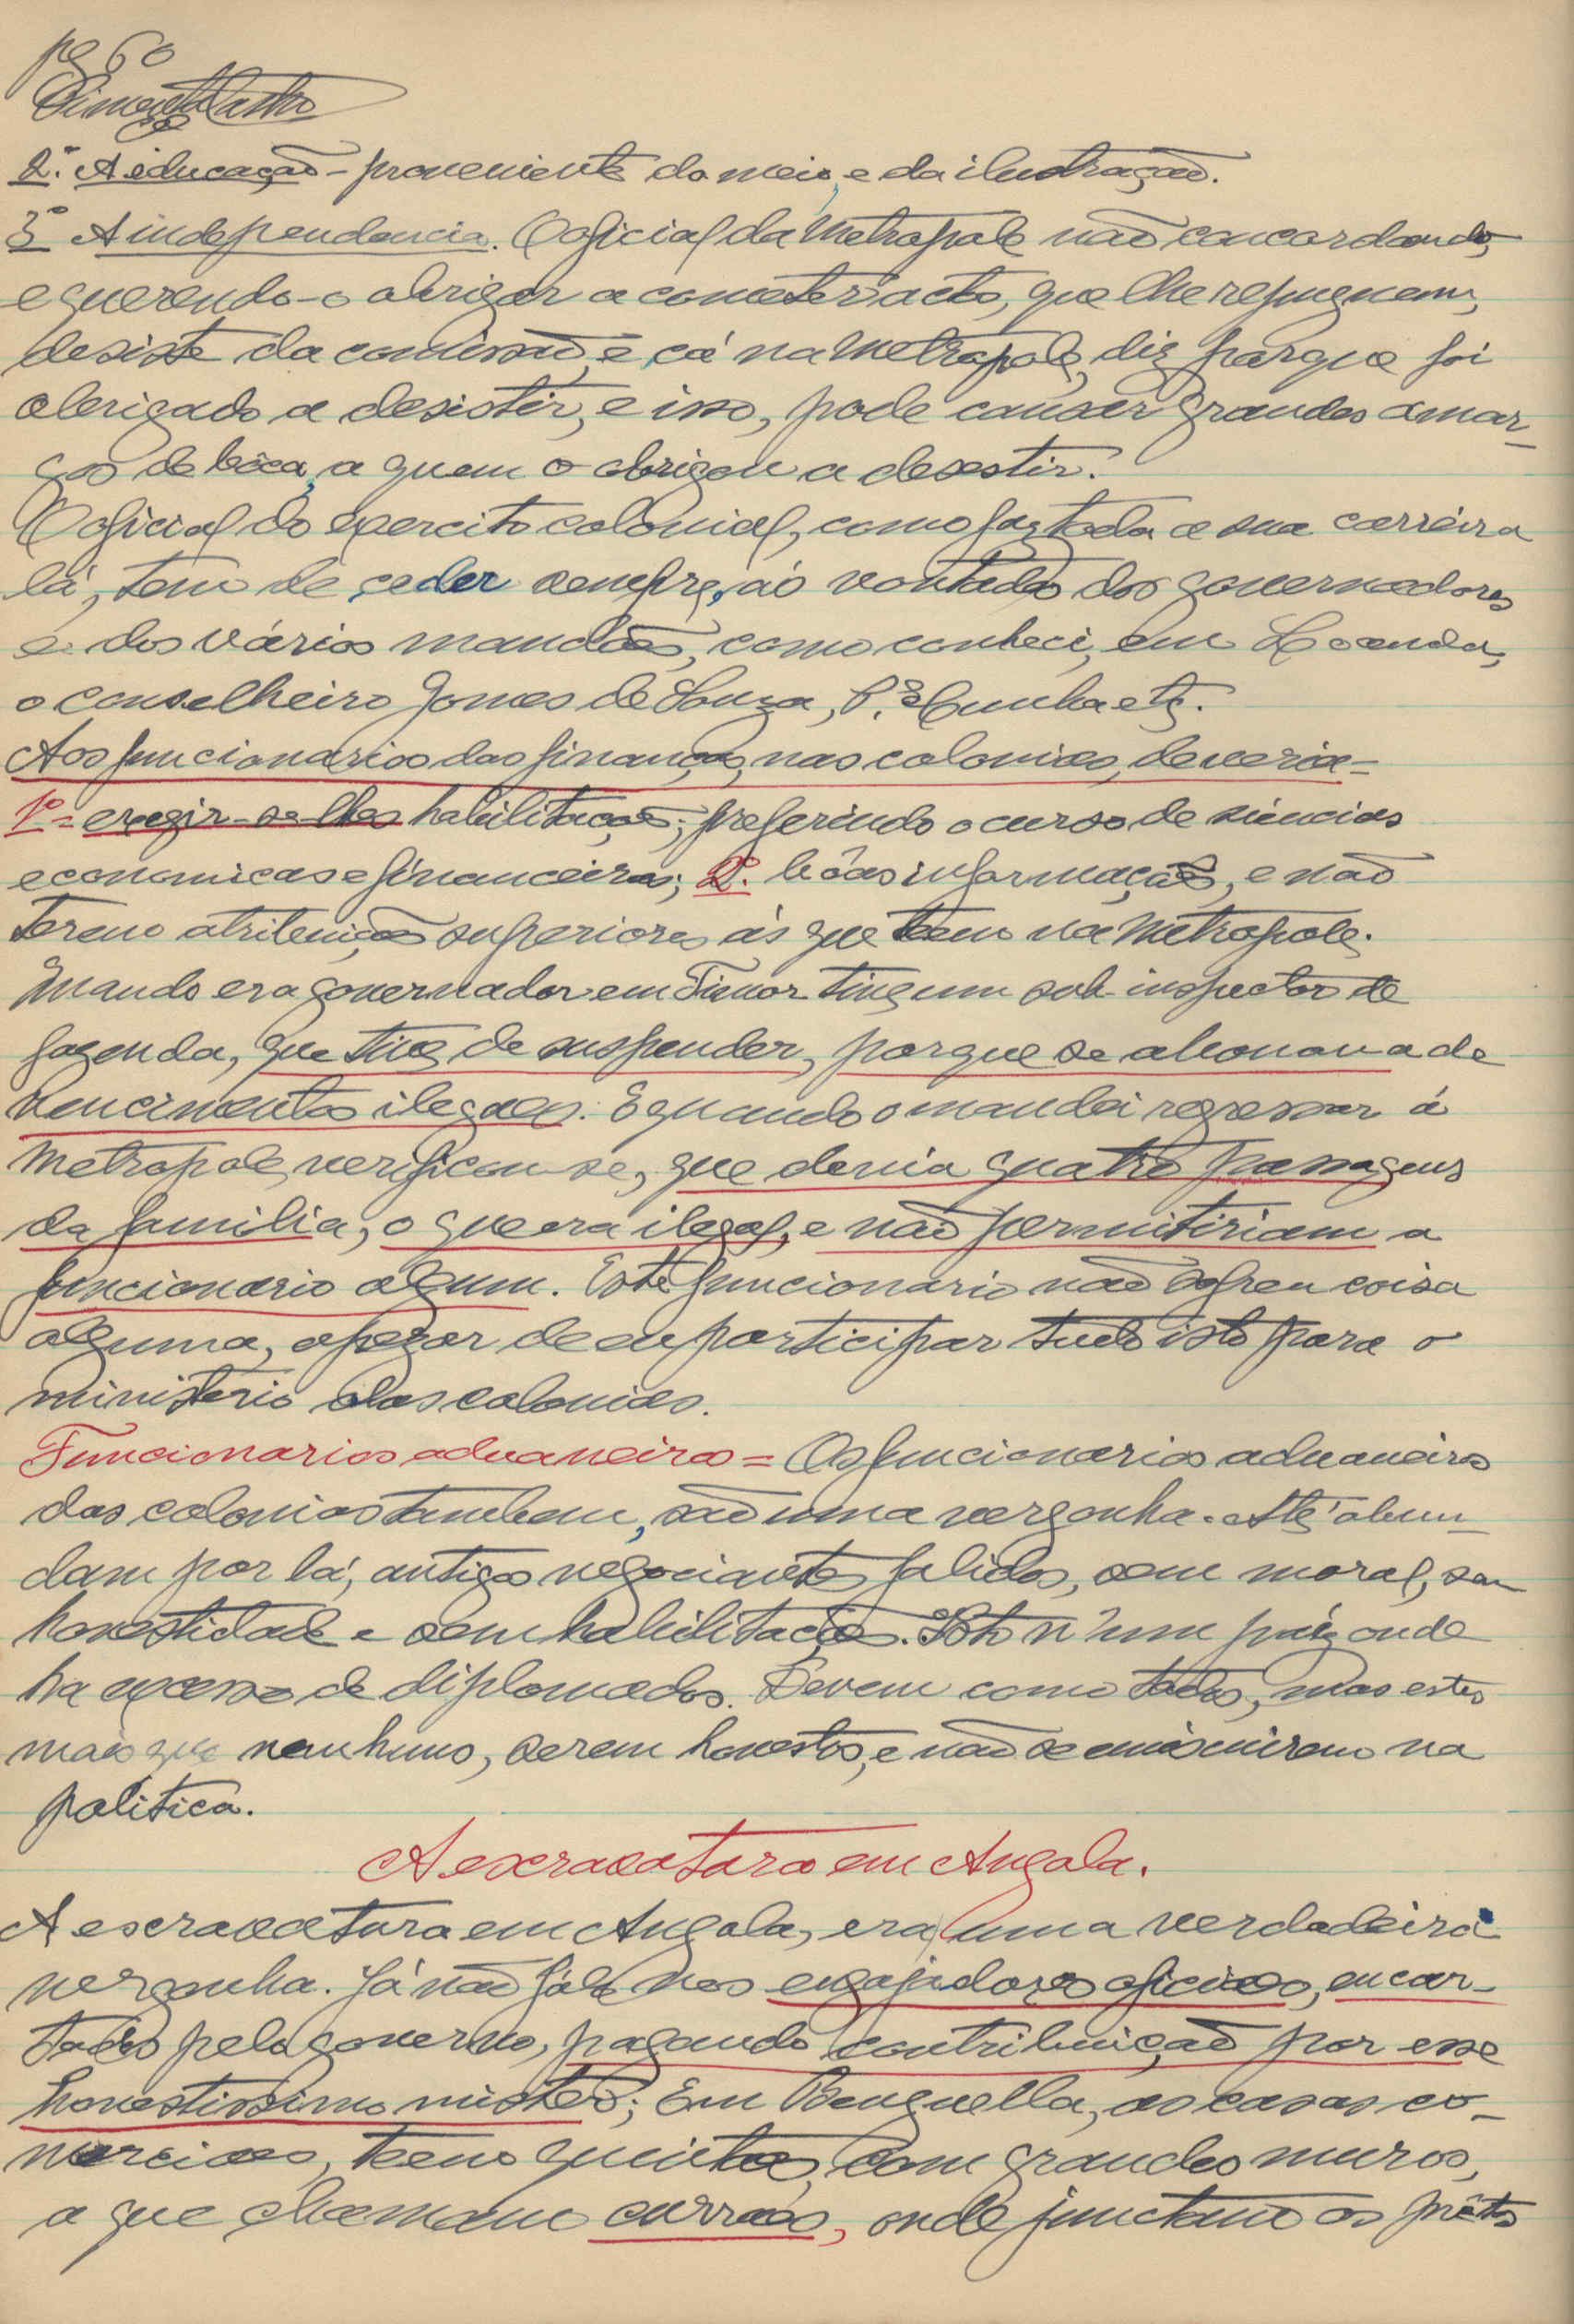 pg 60
2.º A educação - proveniente do meio, e da ilustração.
3º A independencia. O oficial da Metropole não concordando,
e querendo-o obrigar a cometer actos, que lhe repugnem,
desiste da comissão, e cá na Metropole, diz porque foi
obrigado a desistir, e isso, pode causar grandes amar-
gos de bôca, a quem o obrigou a desestir.
O oficial do exercito colonial, como faz toda a sua carreira
lá, tem de ceder sempre, ás vontades dos governadores
e dos vários mandões, como conheci, em Loanda,
o conselheiro Gomes de Souza, P. e Cunha etc.
Aos funcionarios das finanças, nas colonias, deveria-
1º = exegir-se-lhes habilitações; preferindo o curso de siencias
economicas e financeiras; 2º. bôas informações, e não
terem atribuições superiores ás que teem na Metropole.
Quando era governador em Timor tive um sub-inspector de
fazenda, que tive de suspender, porque se abonava de
vencimentos ilegaes. E quando o mandei regressar á
Metropole, verificou-se, que devia quatro passagens
da familia, o que era ilegal, e não permitiriam a
funcionario algum. Este funcionario não sofreu coisa
alguma, apezar de eu participar tudo isto para o
ministerio das colonias.
Funcionarios aduaneiros = Os funcionarios aduaneiros
das colonias tambem, são uma vergonha. Até abun-
dam por lá, antigos negociantes falidos, sem moral, sem
honestidade e sem habilitações. Isto n'um paiz onde
ha excesso de diplomados. Devem como todos, mas estes
mais que nenhuns, serem honestos, e não se emiscuirem na
politica.
A escravatura em Angola.
A escravatura em Angola, era uma verdadeira
vergonha. Já não fálo nos engajadores oficiaes, encar-
tados pelo governo, pagando contribuição por esse
honestissimo mister; Em Benguella, as casas co-
merciaes, teem quintaes, com grandes muros,
a que chamam curraes, onde junctam os prêtos